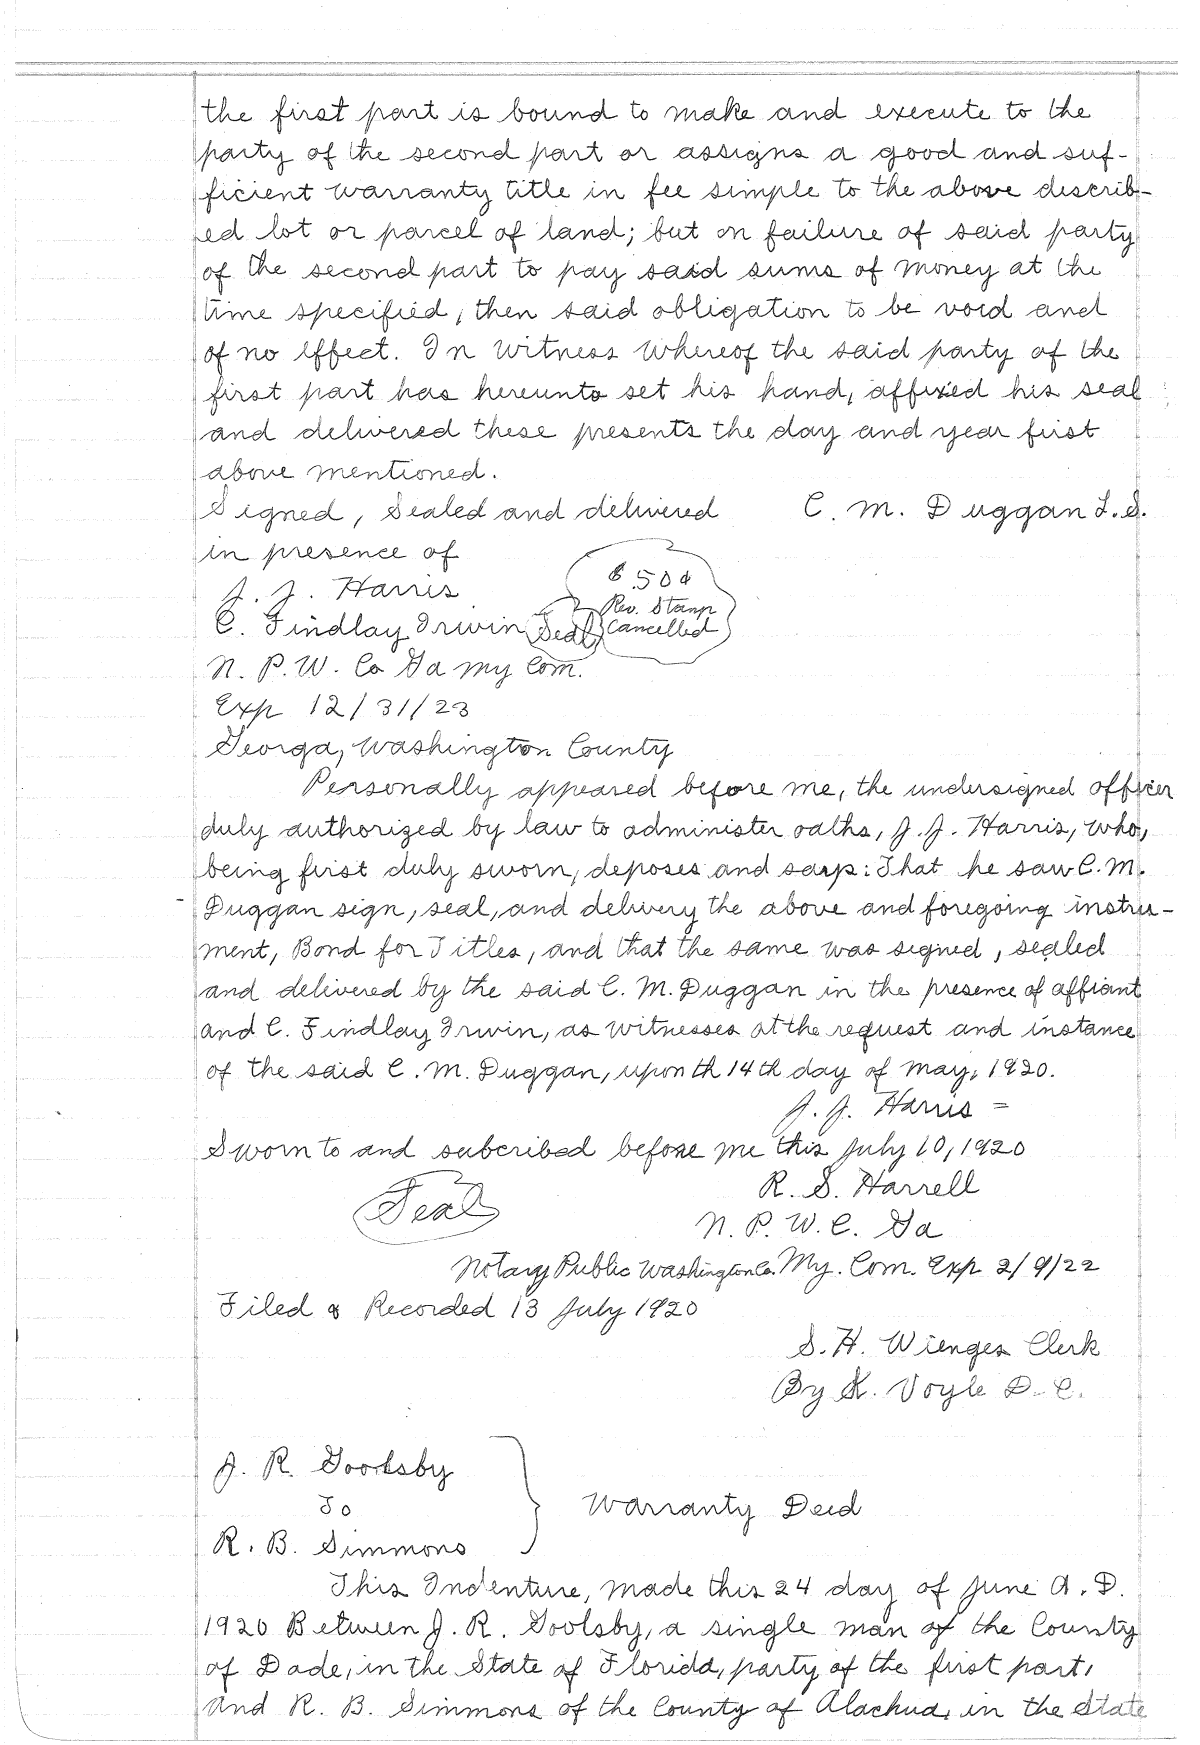 the first part is bound to make and execute to the
party of the second part or assigns a good and suf-
ficient warranty title in fee simple to the above describ-
ed lot or parcel of land; but on failure of said party
of the second part to pay said sums of money at the
time specified, then said obligation to be void and
of no effect. In Witness Whereof the said party of the
first part has hereunto set his hand, affixed his seal
and delivered these presents the day and year first
above mentioned.
Signed, Sealed and delivered C. M. Duggan L.S.
in presence of
J. J. Harris
$.50¢
Rev. Stamp
Cancelled
C. Findlay Irwin Seal
N. P. W. Co Ga my Com.
Exp 12/31/23
Georga, Washington County
Personally appeared before me, the undersigned officer
duly authorized by law to administer oaths, J. J. Harris, who,
being first duly sworn, deposes and says: That he saw C. M.
Duggan sign, seal, and delivery the above and foregoing instru-
ment, Bond for Titles, and that the same was signed, sealed
and delivered by the said C. M. Duggan in the presence of affiant
and C. Findlay Irwin, as witnesses at the request and instance
of the said C. M. Duggan, upon th 14th day of May, 1920.
J. J. Harris =
Sworn to and subcribed before me this July 10, 1920
R. S. Harrell
Seal
N. P. W. C. Ga
Notary Public Washington Co. My. Com. Exp 2/9/22
Filed & Recorded 13 July 1920
S. H. Wienges Clerk
By K. Voyle D. C.
J. R. Goolsby
To
R. B. Simmons
Warranty Deed
This Indenture, made this 24 day of June A. D.
1920 Between J. R. Goolsby, a single man of the County
of Dade, in the State of Florida, party of the first part,
and R. B. Simmons of the County of Alachua, in the State